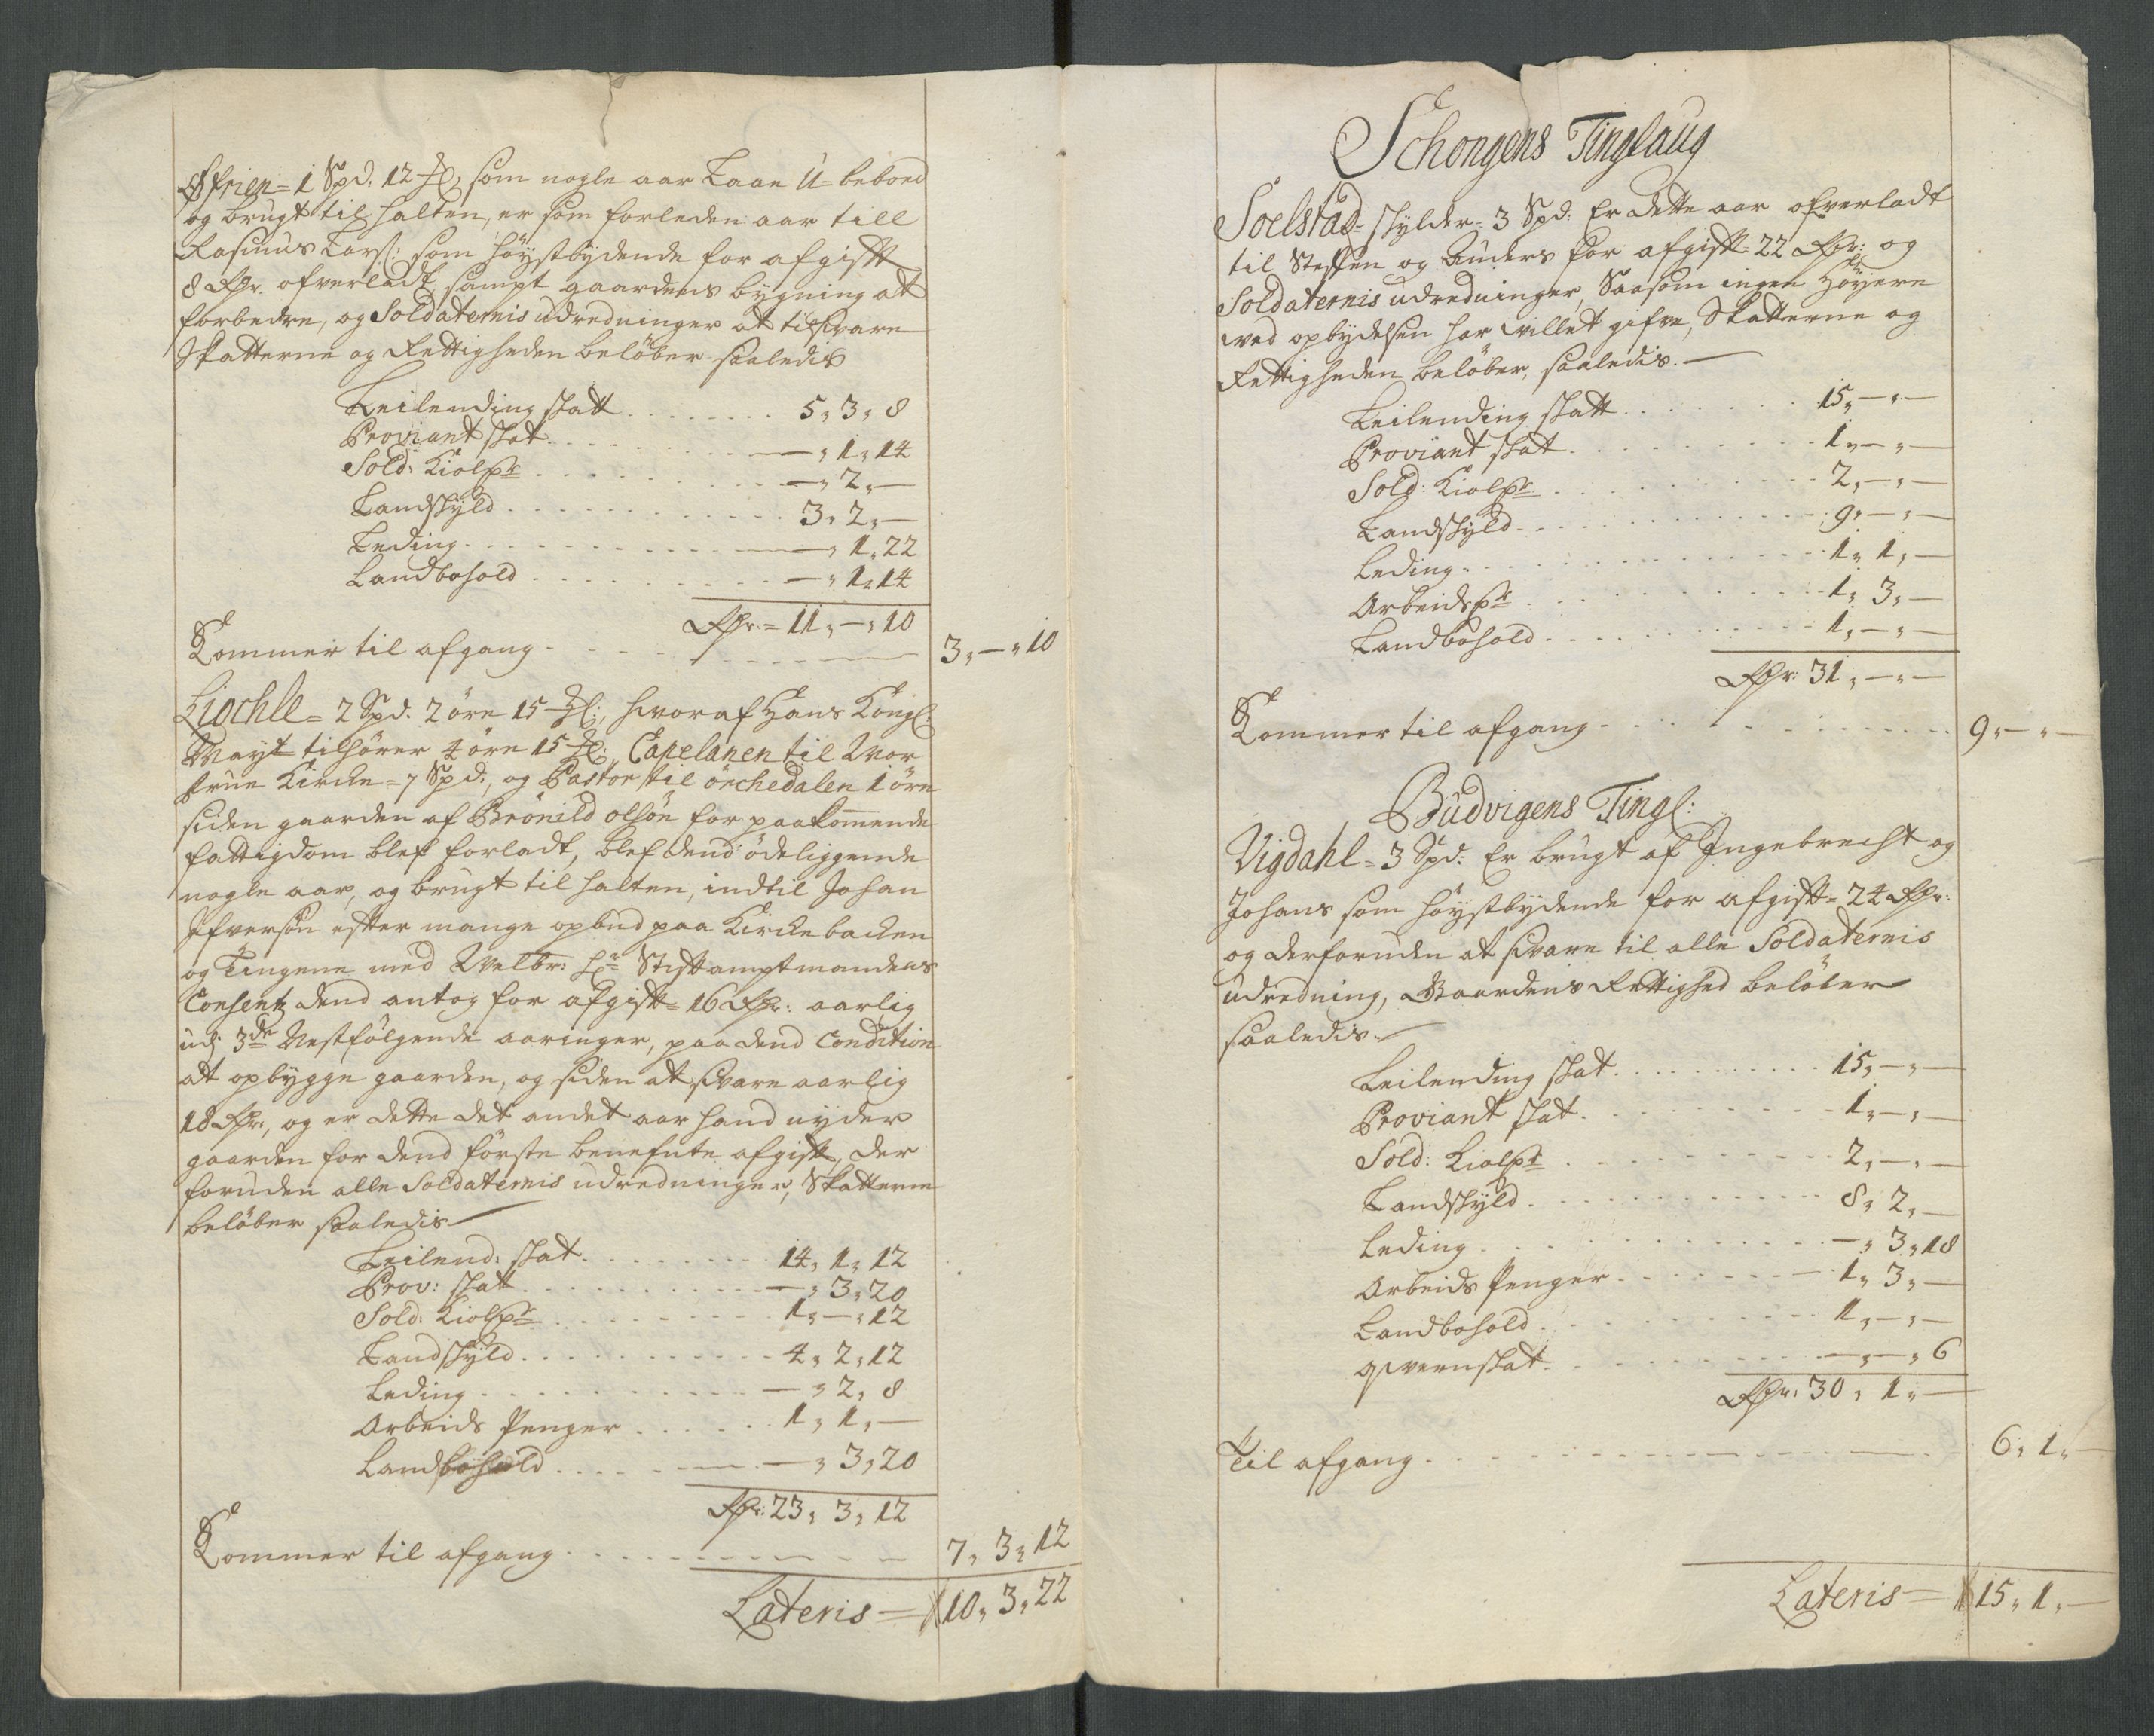 Øfrien = 1 Spd: 12 ℔, som nogle aar Laae U-beboed
og brugt til halten, er som forleden aar till
Rasmus Lars: som höystbydende for afgift
8 Rdr. ofverladt, sampt gaardens bygning at
forbedre, og Soldaternis udredninger at tilsvare
Skatterne og Rettigheden beløber saaledis
Leilending skatt . . . 5, 3, 8
Proviant skat . . . —, 1, 14
Sold: Kiolpr . . . —, 2, —
Landskyld . . . 3, 2, —
Leding . . . —, 1, 22
Landbohold . . . —, 1, 14
Rdr. = 11, —, 10
Kommer til afgang . . . 3, —, 10
Liochle = 2 Spd. 2 öre 15 ℔:, hvoraf Hans Kongl:
Mayt tilhörer 4 öre 15 ℔: Capelanen til Vor
frue Kircke = 7 Spd:, og Pastor til örchedalen 1 öre
siden gaarden af Brönild olsön for paakommende
fattigdom blef forladt, blef dend ödeliggende
nogle aar, og brugt til halten, indtil Johan
Ifversön efter mange opbud paa Kirckebacken
og Tingene med Welbr: Hr Stiftamptmandens
Consentz dend antog for afgift = 16 Rdr: aarlig
udj 3de Nestfölgende aaringer, paa dend Condition
at opbygge gaarden, og siden at svare aarlig
18 Rdr:, og er dette det andet aar hand nyder
gaarden for dend förste benefnte afgift, der
foruden alle Soldaternis udredninger, Skatterne
beløber saaledis
Leilend: skat . . . 14, 1, 12
Prov: skatt . . . —, 3, 20
Sold: Kiolpr . . . 1, —, 12
Landskyld . . . 4, 2, 12
Leding . . . —, 2, 8
Arbeids Penger . . . 1, 1, —
Landbohold . . . —, 3, 20
Rdr: 23, 3, 12
Kommer til afgang . . . 7, 3, 12
Lateris = 10, 3, 22
Schongens Tinglaug
Soelstad = skylder = 3 Spd: Er dette aar ofverladt
til Steffen og Anders for afgift = 22 Rdr: og
Soldaternis udredninger, Saasom ingen Höyere
ved opbydelsen har villet gifve, Skatterne og
Rettigheden beløber, saaledis. —
Leilending skatt . . . 15, —, —
Proviant skat . . . 1, —, —
Sold: Kiolpr . . . 2, —, —
Landskyld . . . 9, —, —
Leding . . . 1, 1, —
Arbeidspr . . . 1, 3, —
Landbohold . . . 1, —, —
Rdr: 31, —, —
Kommer til afgang . . . 9, —, —
Budvigens Tingl:
Vigdahl = 3 Spd: Er brugt af Ingebrecht og
Johans som höystbydende for afgift = 24 Rdr:
og derforuden at svare til alle Soldaternis
udredning, Gaardens Rettighed beløber
saaledis
Leilending skat . . . 15, —, —
Proviant skat . . . 1, —, —
Sold: Kiolpr . . . 2, —, —
Landskyld . . . 8, 2, —
Leding . . . —, 3, 18
Arbeids Penger . . . 1, 3, —
Landbohold . . . 1, —, —
Qvernskat . . . —, —, 6
Rdr: 30, 1, —
Til afgang . . . 6, 1, —
Lateris = 15, 1, —